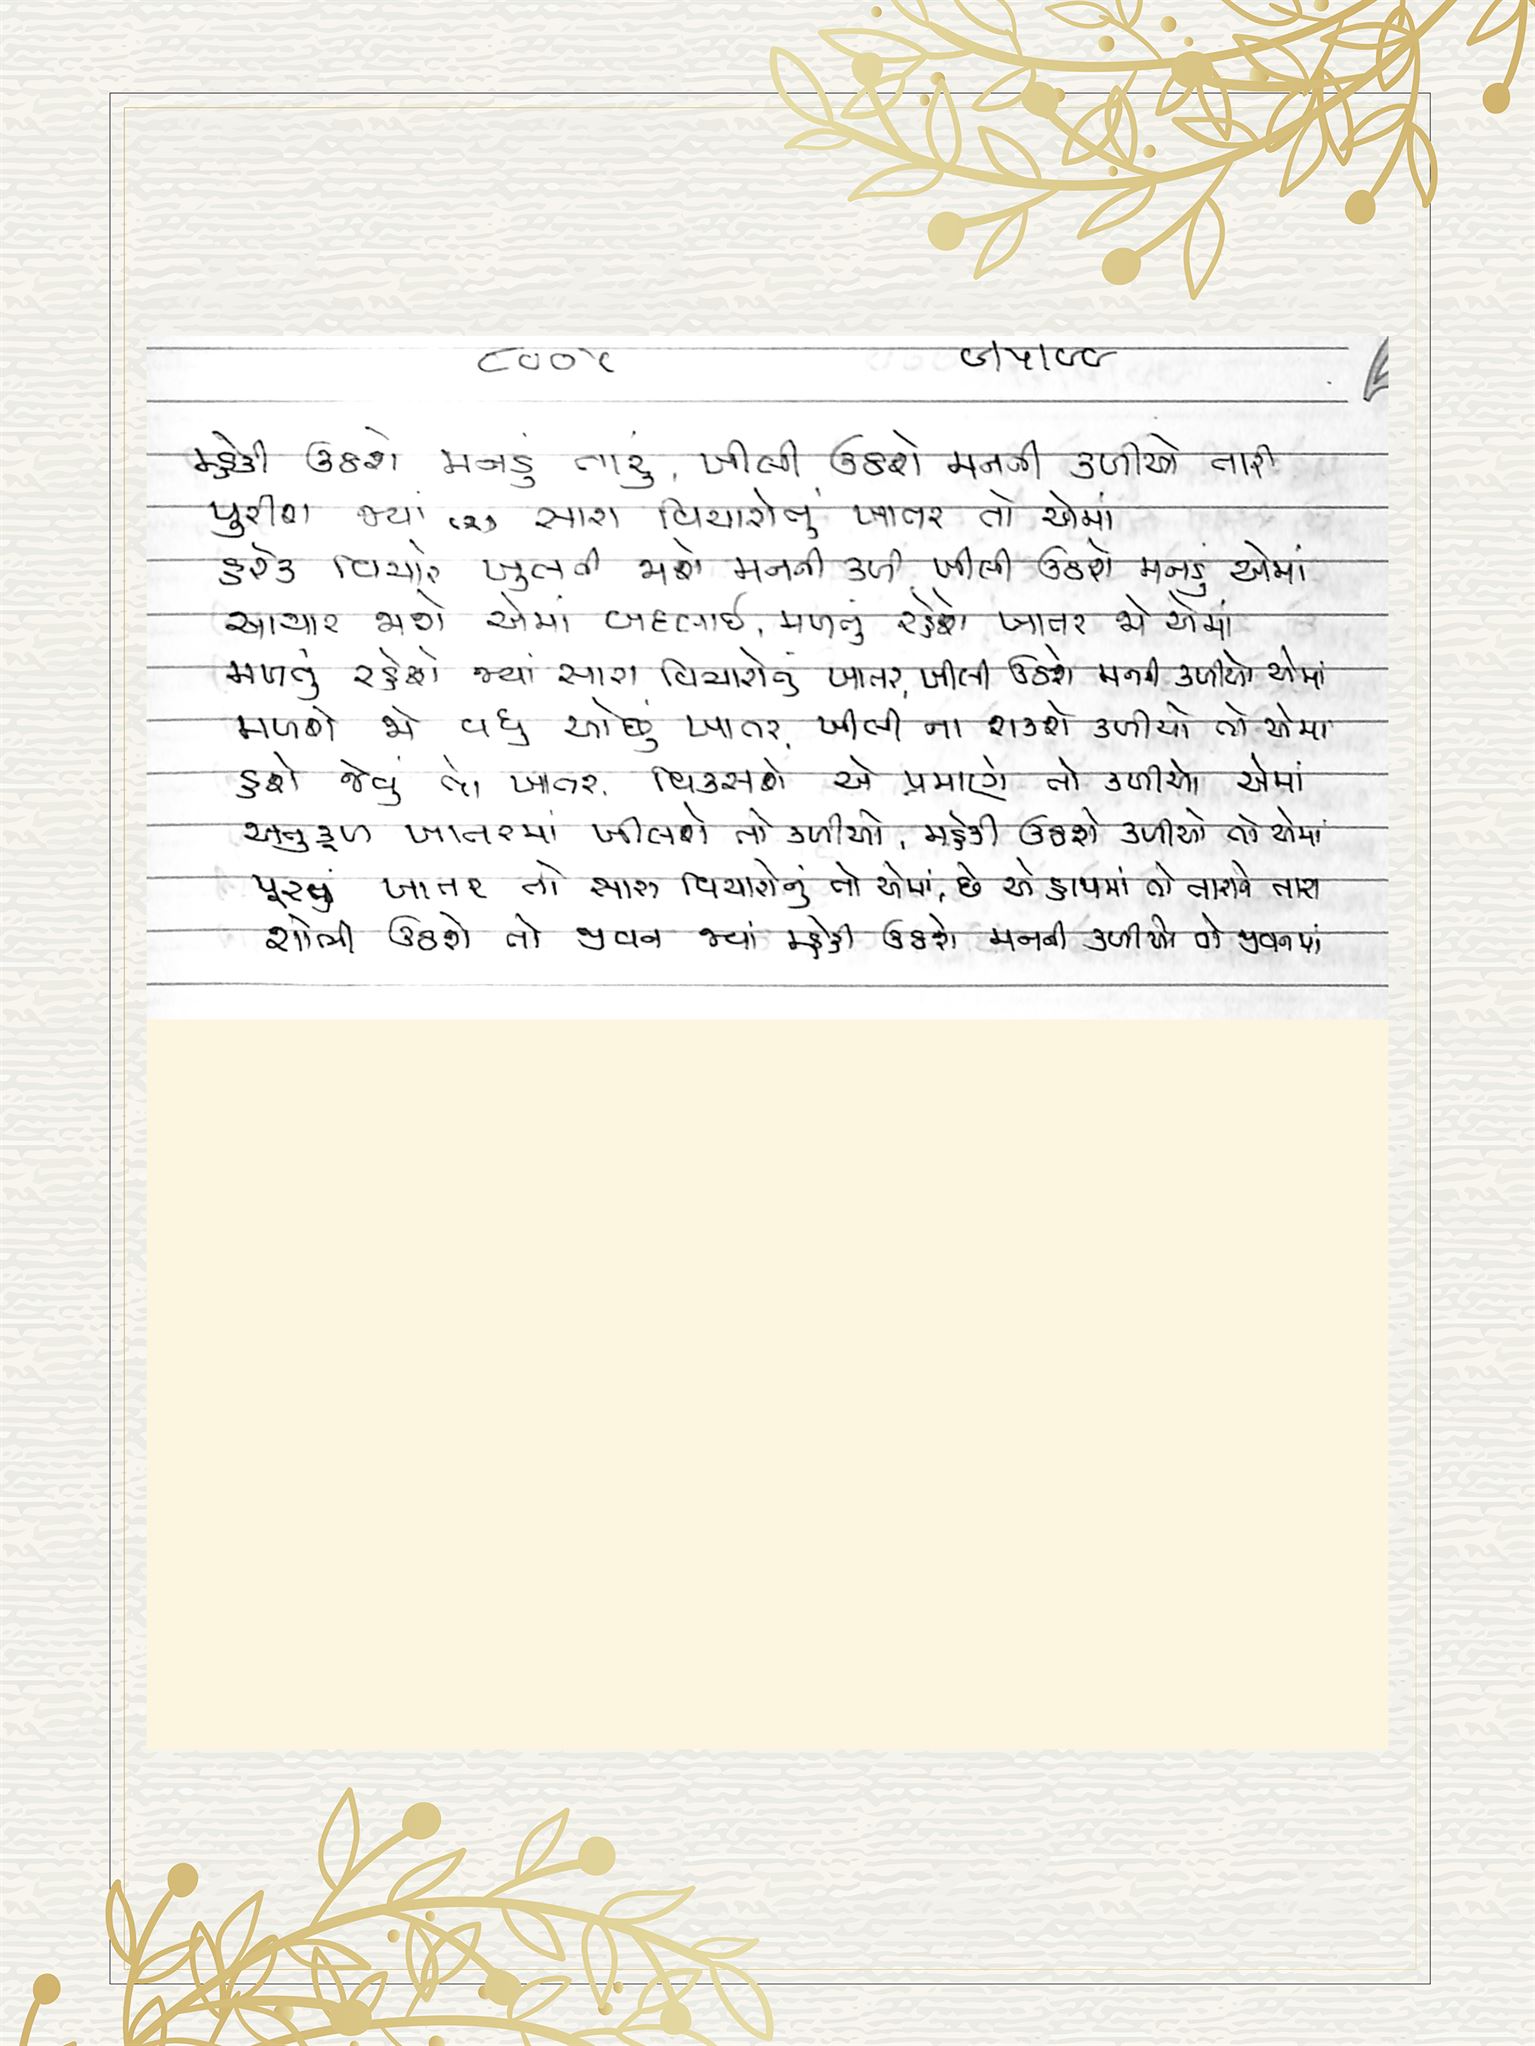 મ્હેકી ઉઠશે મનડું તારું, ખીલી ઉઠશે મનની કળીઓ તારી
પુરીશ જ્યાં (૨) સારા વિચારોનું ખાતર તો એમાં
હરેક વિચારે ખુલતી જાશે મનની કળી, ખીલી ઉઠશે મનડું એમાં
આચાર જાશે એમાં બદલાઈ, મળતું રહેશે ખાતર જો એમાં
મળતું રહેશે જ્યાં સારા વિચારોનું ખાતર, ખીલી ઉઠશે મનની કળીઓ એમાં
મળશે જો વધુ ઓછું ખાતર, ખીલી ના શકશે કળીયો તો એમાં
હશે જેવું તે ખાતર, વિકસશે એ પ્રમાણે તો કળીઓ એમાં
અનુકૂળ ખાતરમાં ખીલશે તો કળીઓ, મ્હેકી ઉઠશે કળીઓ તો એમાં
પૂરવું ખાતર તો સારા વિચારોનું તો એમાં, છે એ હાથમાં તો તારાને તારા
શોભી ઉઠશે તો જીવન જ્યાં મ્હેકી ઉઠશે મનની કળીઓ તો જીવનમાં